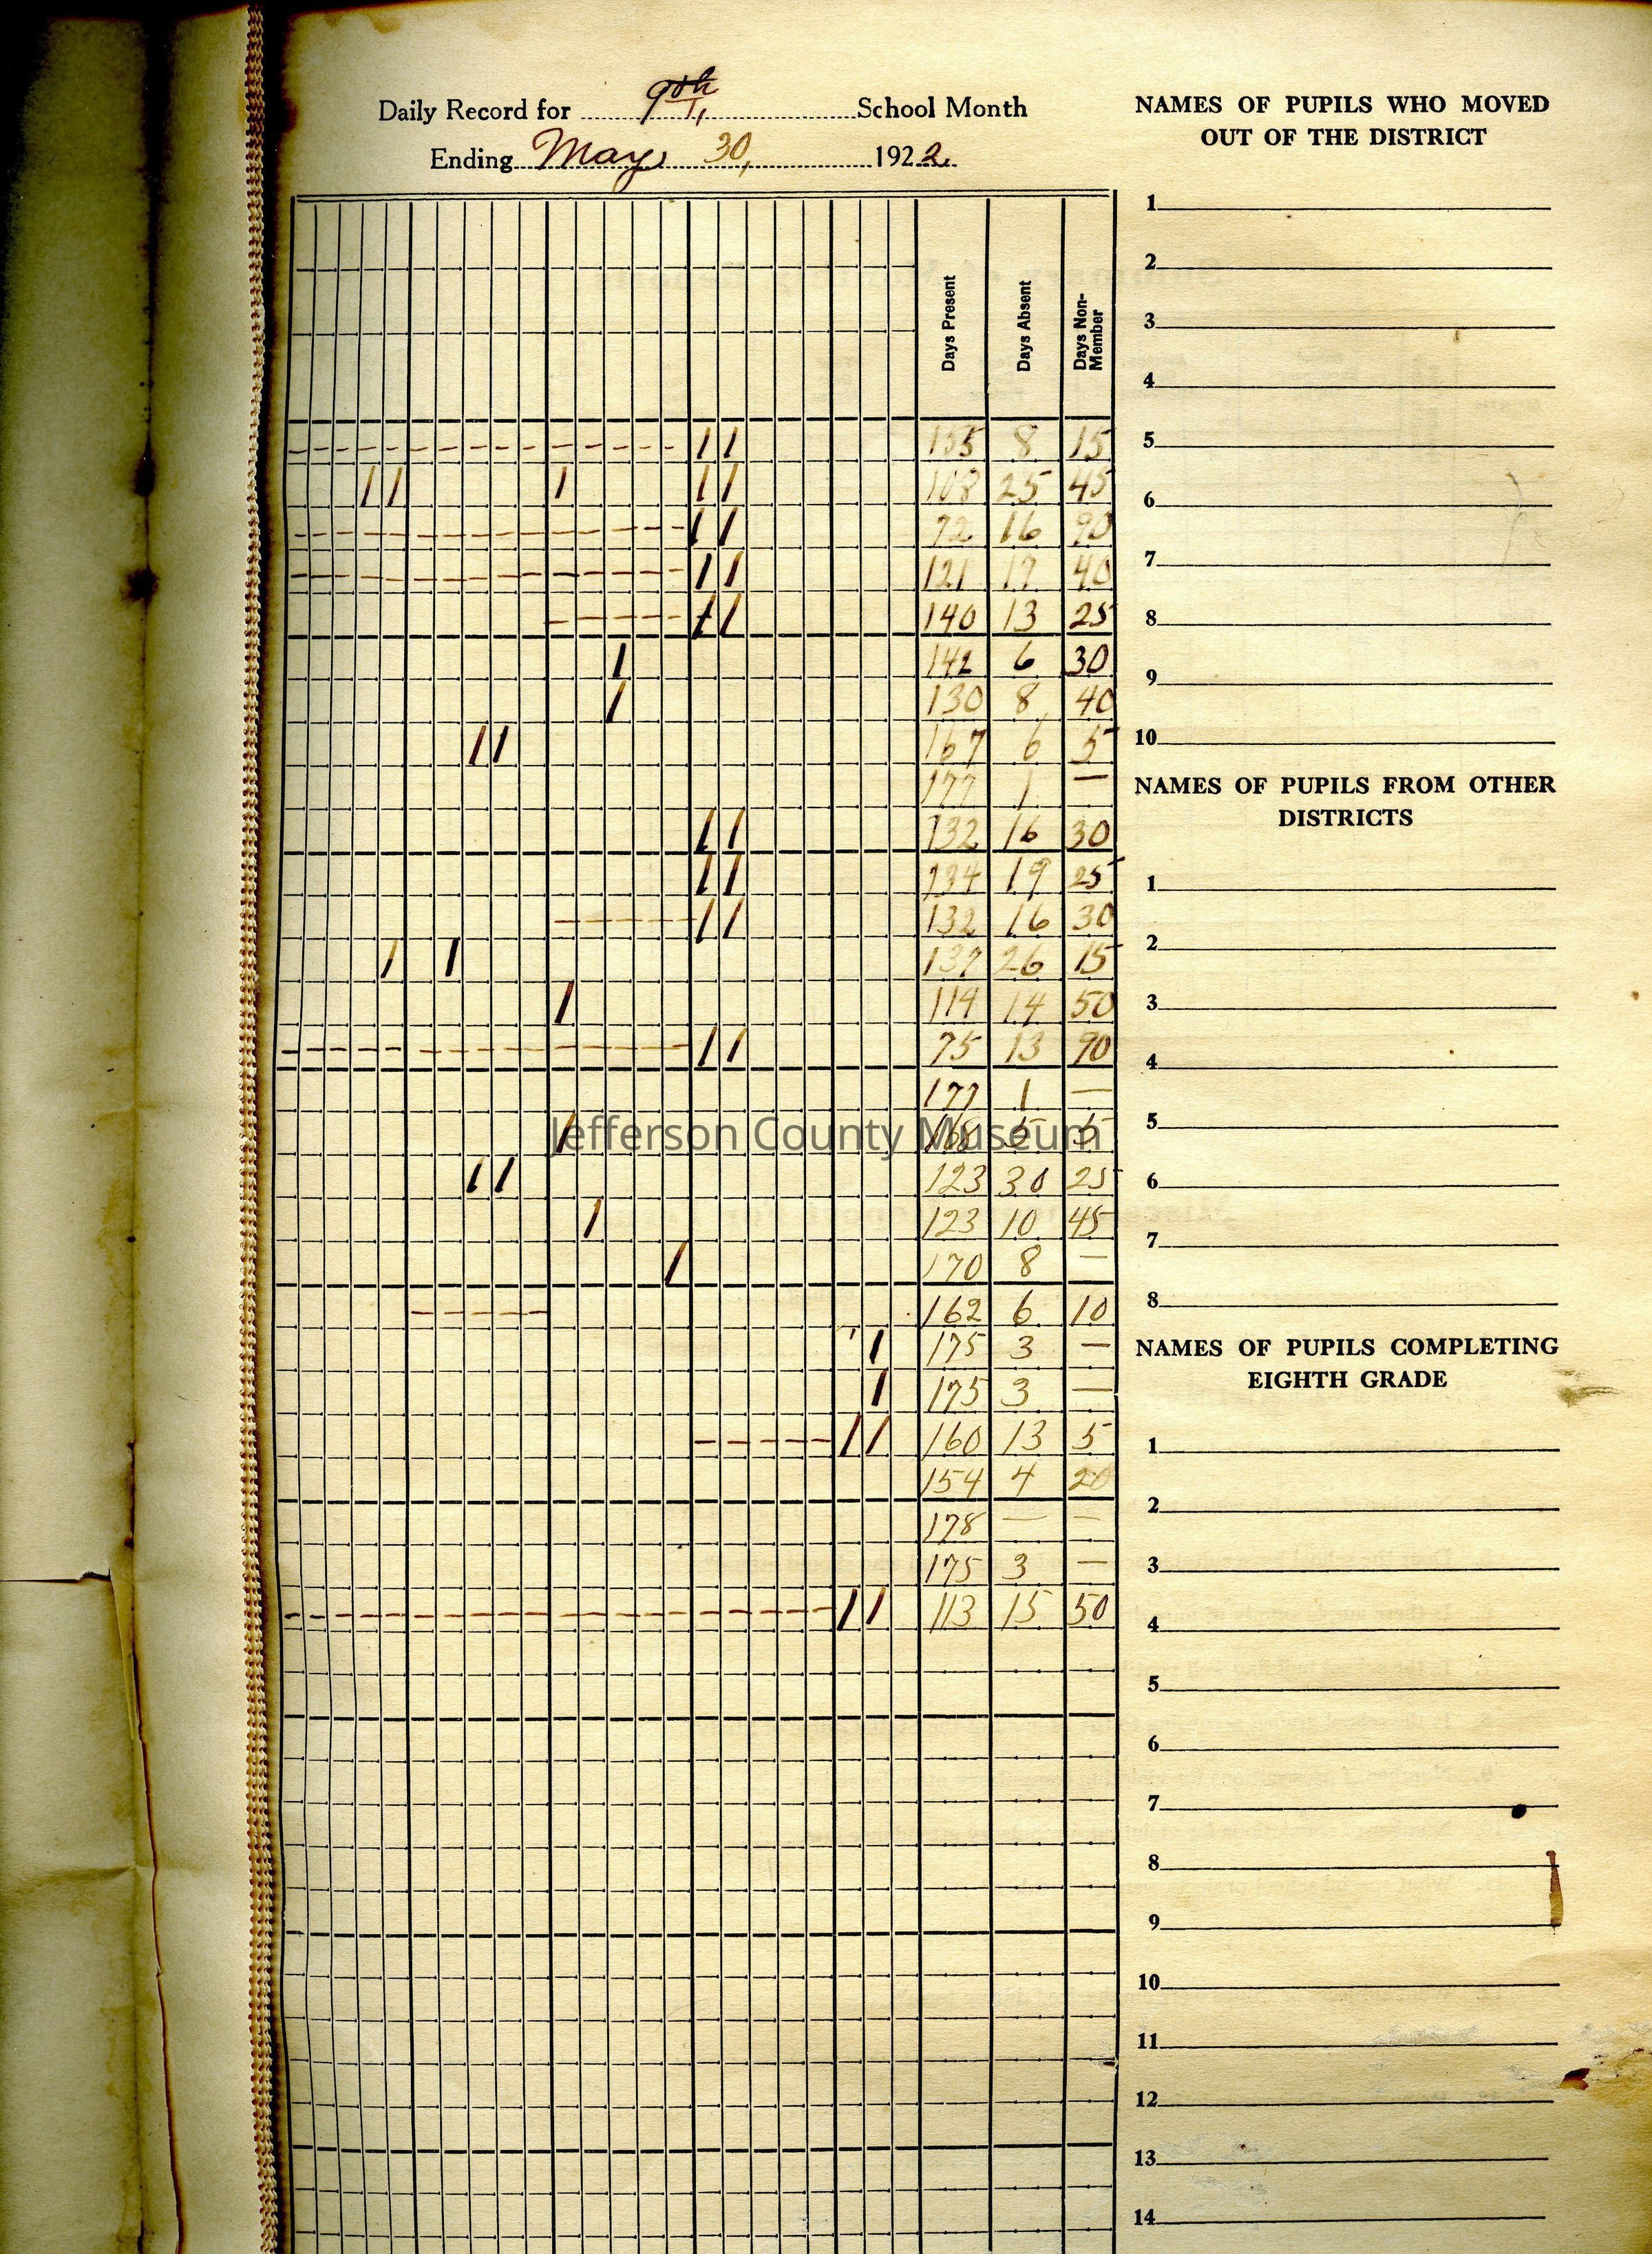 Daily Record for 9th School Month
Ending May 30, 1922
Days Present Days Absent Days Non-Member
155 8 15
108 25 45
72 16 90
121 17 40
140 13 25
142 6 30
130 8 40
167 6 5
177 1 —
132 16 30
134 19 25
132 16 30
137 26 15
114 14 50
75 13 90
177 1 —
168 5 5
Jefferson County Museum
123 30 25
123 10 45
170 8 —
162 6 10
175 3 —
175 3 —
160 13 5
154 4 20
178 — —
175 3 —
113 15 50
NAMES OF PUPILS WHO MOVED
OUT OF THE DISTRICT
1
2
3
4
5
6
7
8
9
10
NAMES OF PUPILS FROM OTHER
DISTRICTS
1
2
3
4
5
6
7
8
NAMES OF PUPILS COMPLETING
EIGHTH GRADE
1
2
3
4
5
6
7
8
9
10
11
12
13
14